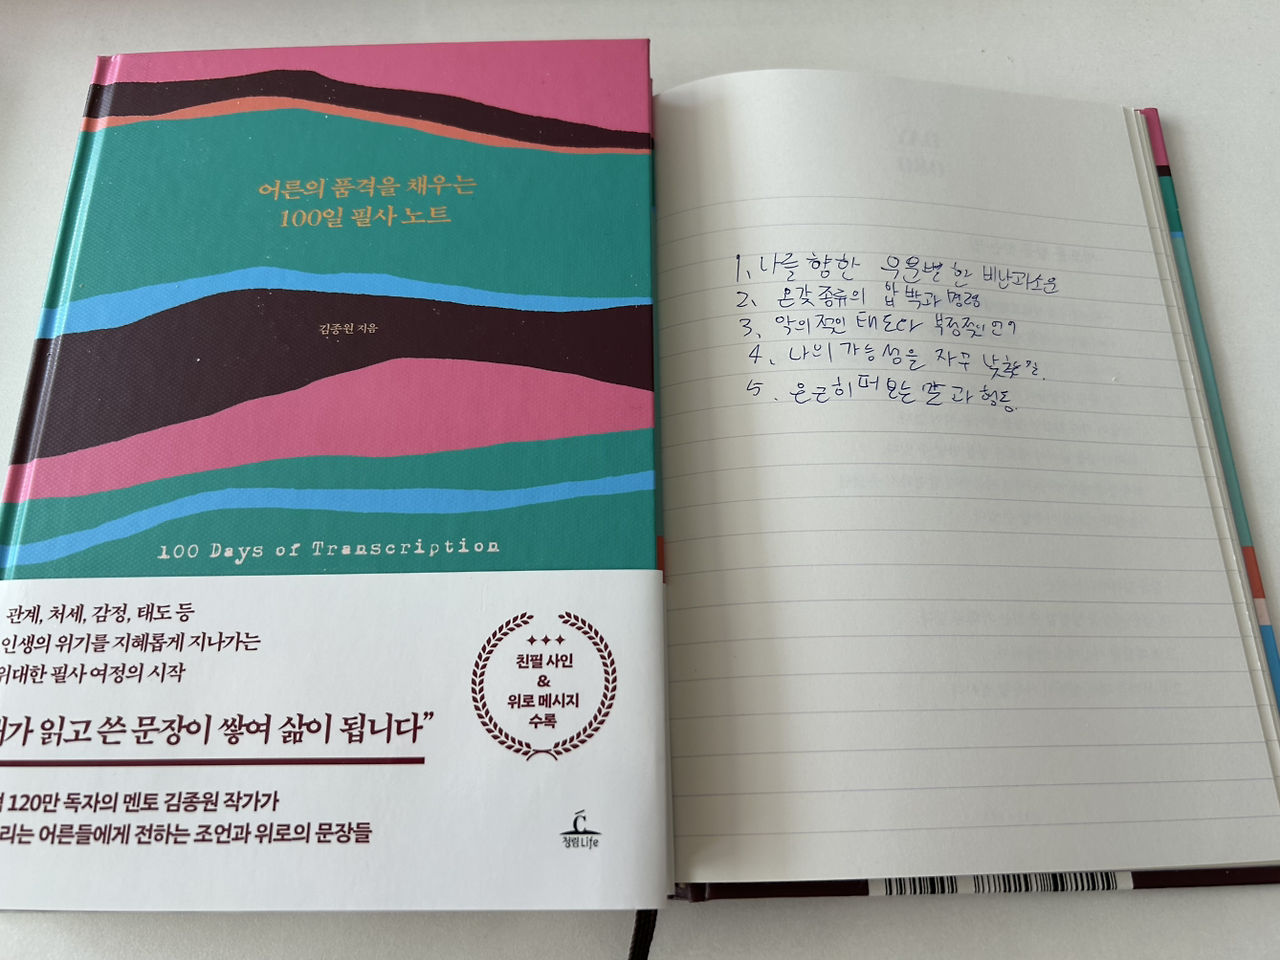 어른의 품격을 채우는
100일 필사 노트
김종원 지음
100 Days of Transcription
관계, 처세, 감정, 태도 등
인생의 위기를 지혜롭게 지나가는
위대한 필사 여정의 시작
가 읽고 쓴 문장이 쌓여 삶이 됩니다”
120만 독자의 멘토 김종원 작가가
리는 어른들에게 전하는 조언과 위로의 문장들
친필 사인
&
위로 메시지
수록
청림Life
1. 나를 향한 무분별한 비난과 소문
2. 온갖 종류의 압박과 명령
3. 악의적인 태도다 부정적인
4. 나의 가능성을 자꾸
5. 은근히 퍼 보는 말과 행동.